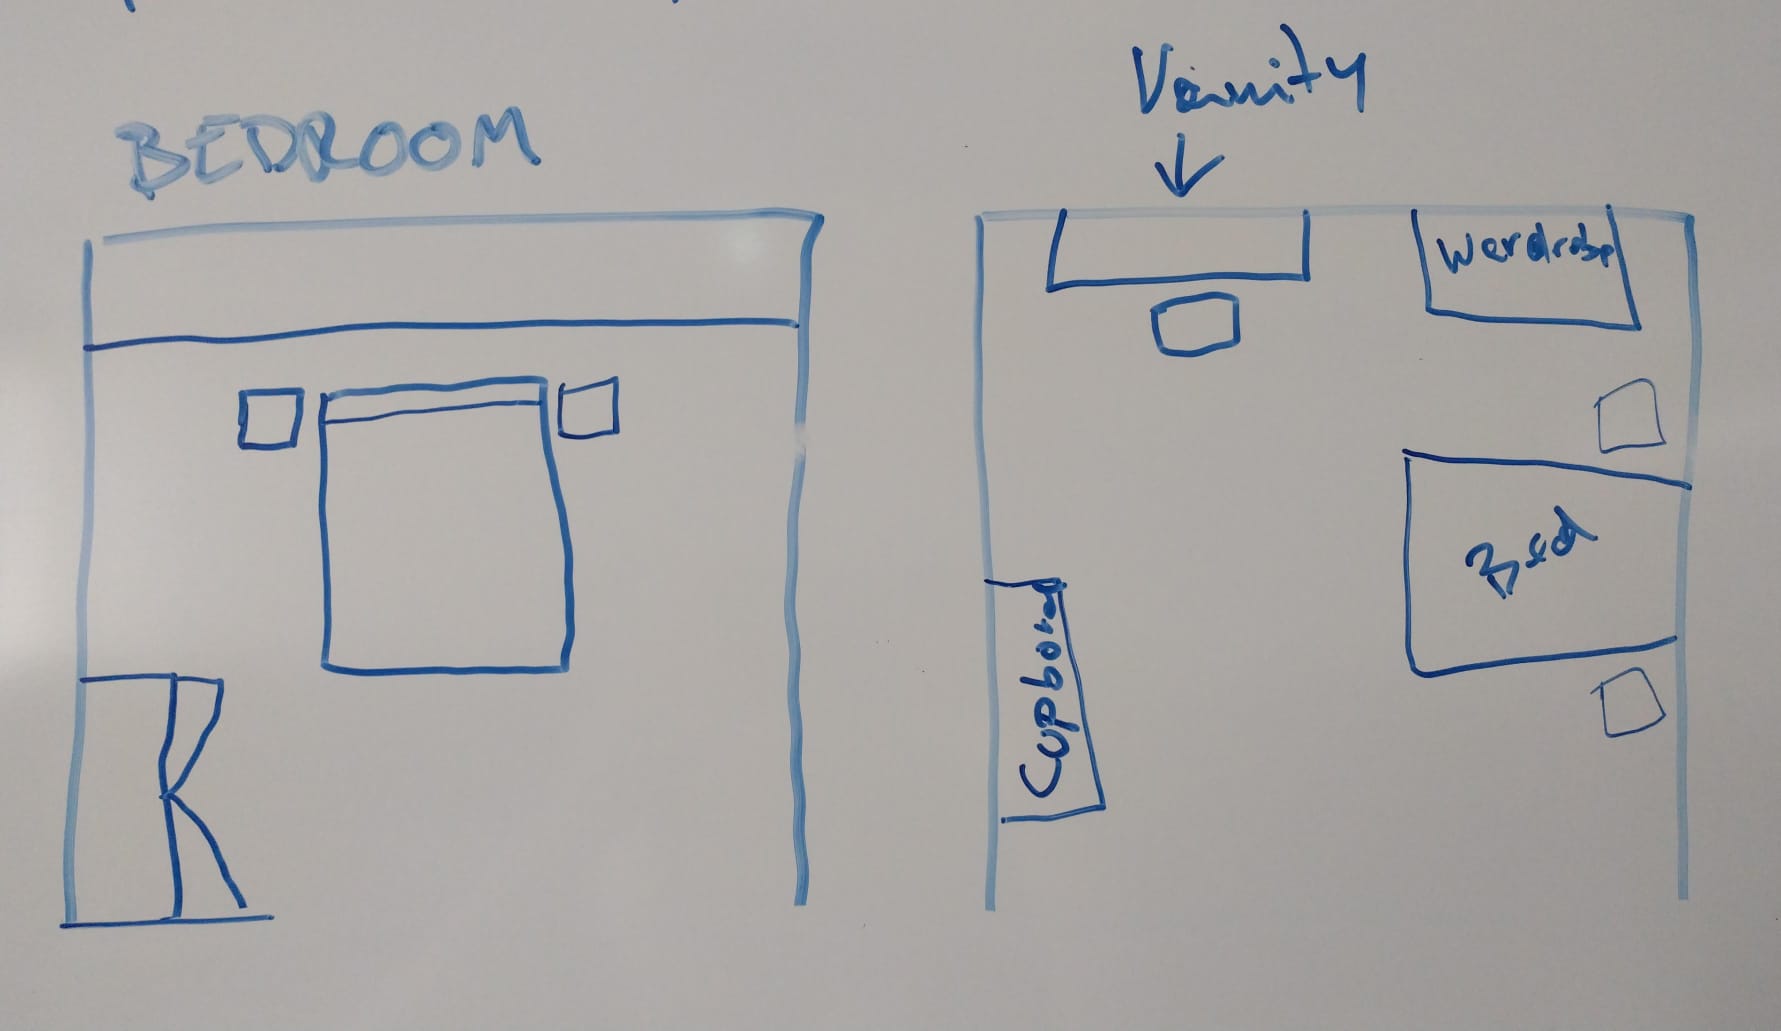 BEDROOM
Vanity
Werdrobe
Bed
Cupboard